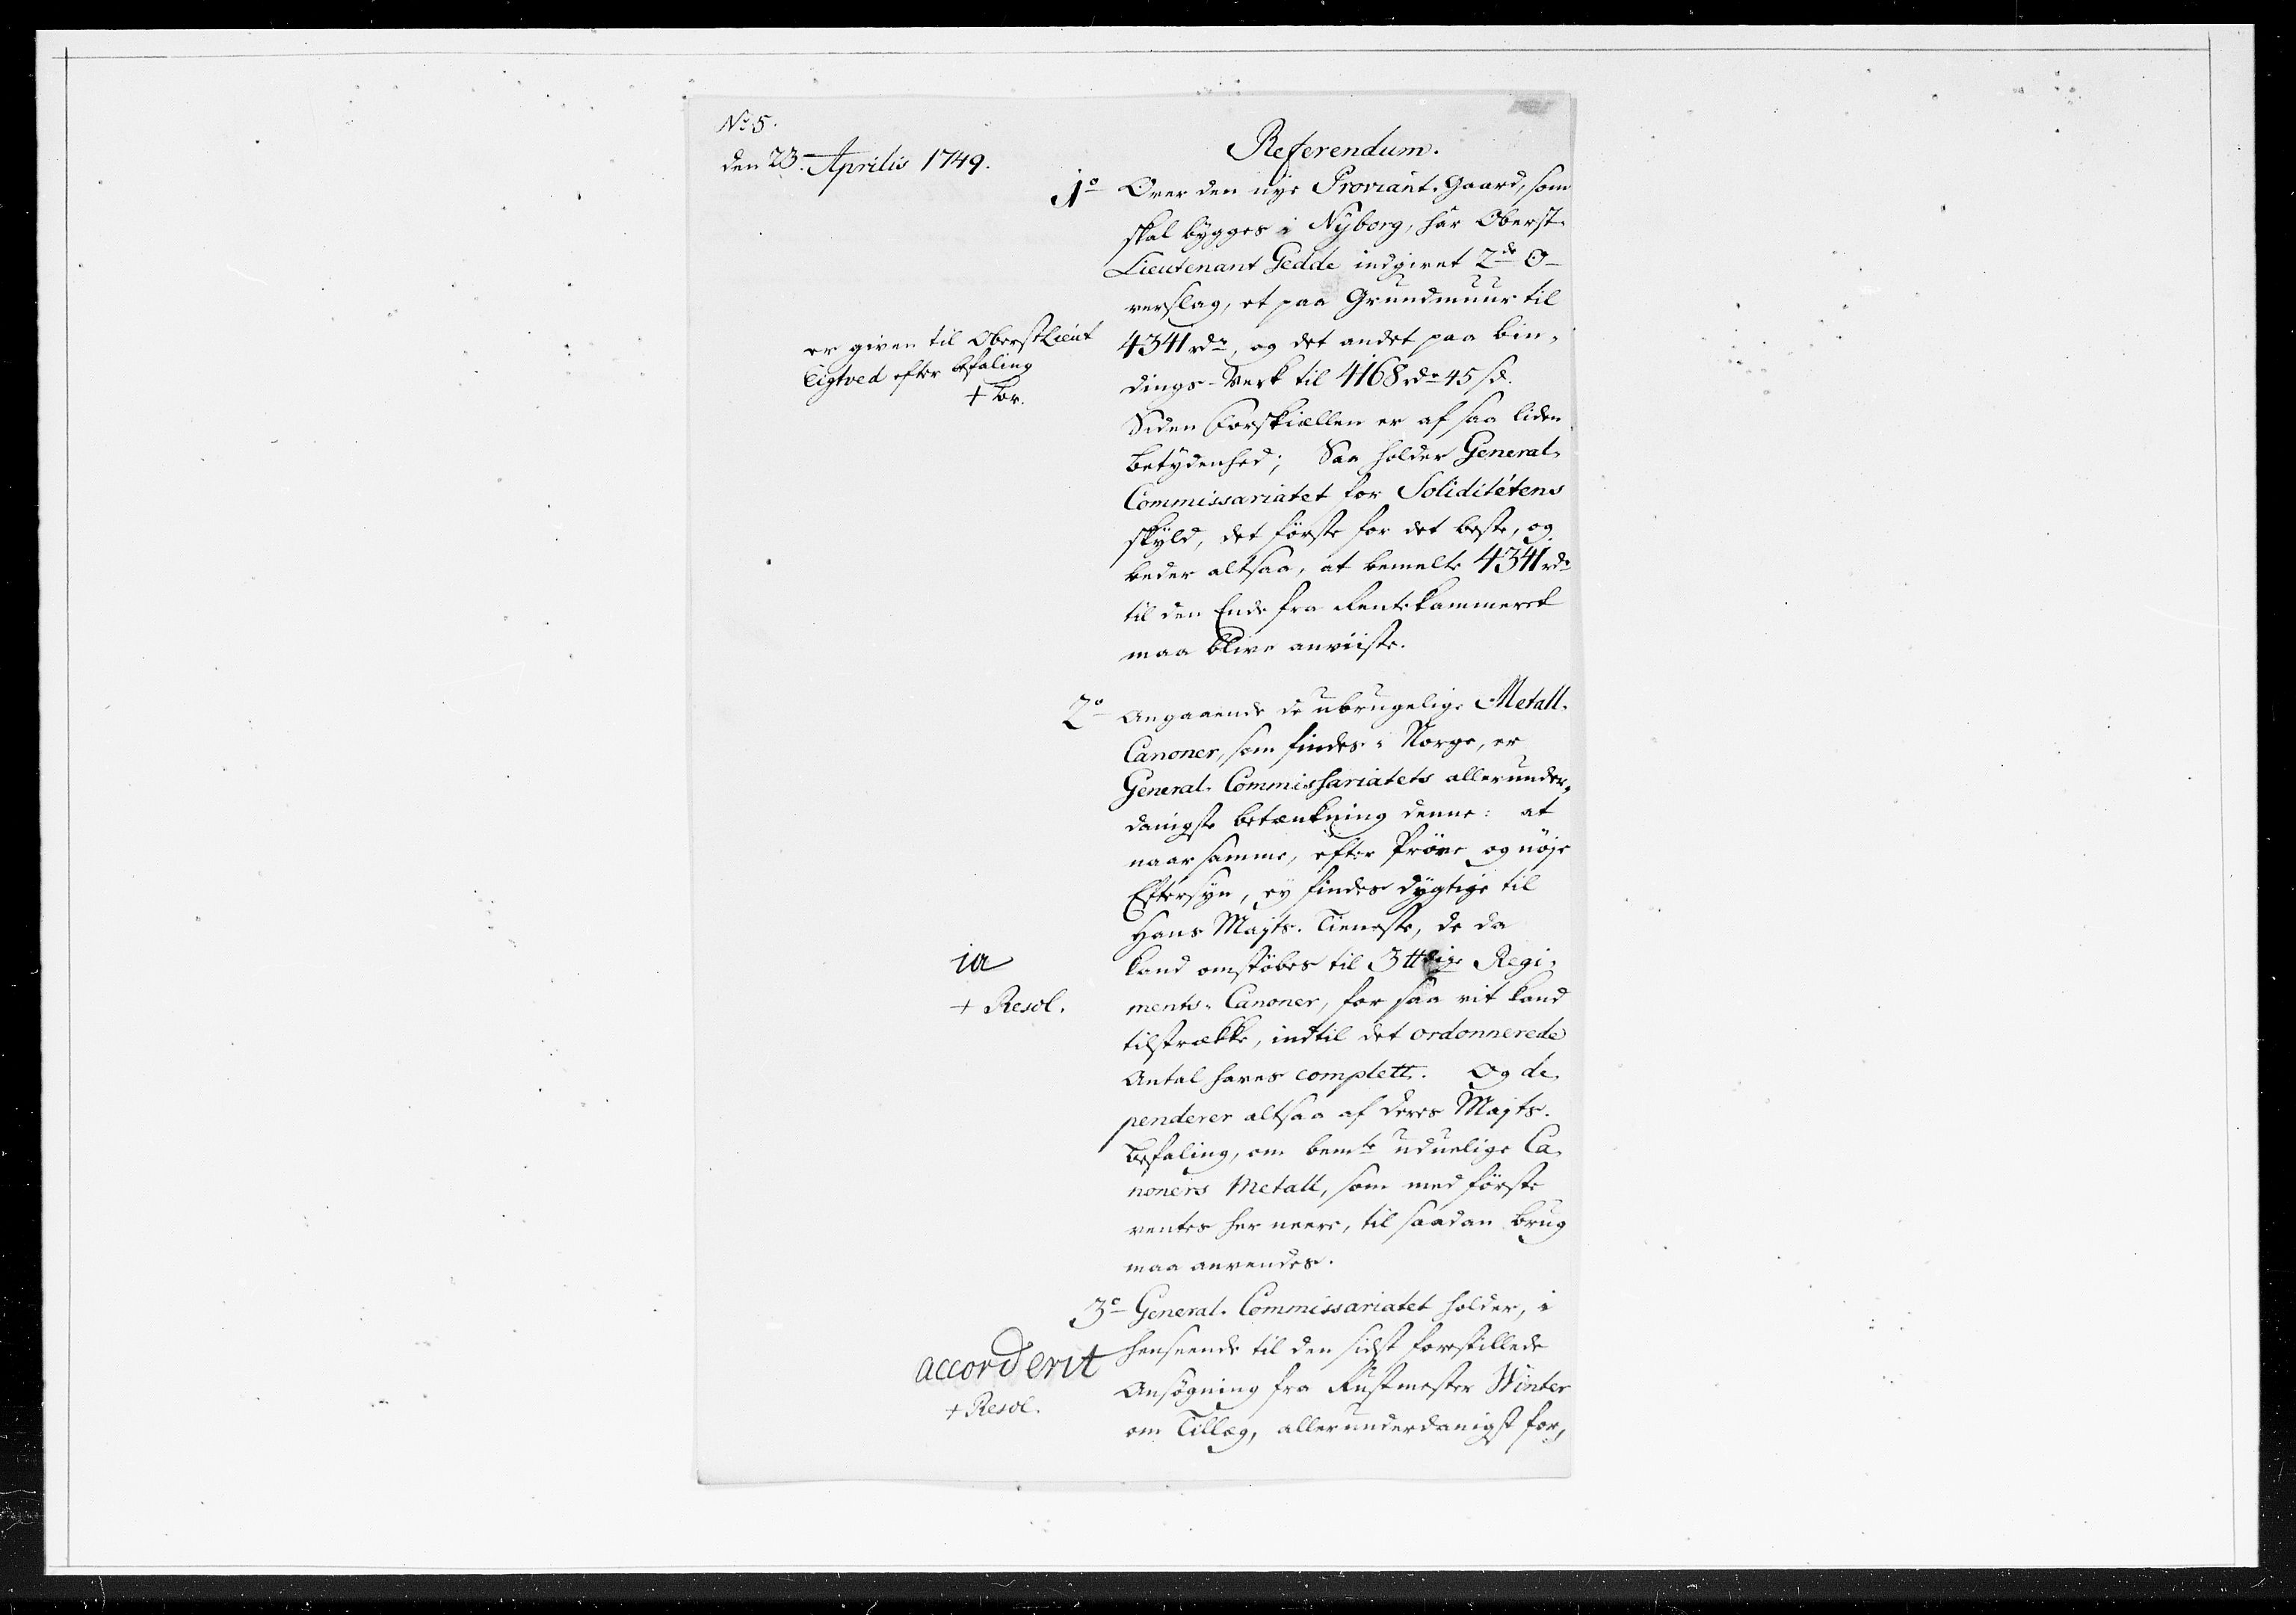 No 5.
den 23. Aprilis 1749.
Referendum.
1o Over den nye Proviant-Gaard, som
skal bygges i Nyborg, har Oberst-
Lieutenant Gedde indgivet 2de O-
verslag, et paa Grundmuur til
4341 rdr, og det andet paa bin-
dings-Verk til 4168 rdr 45 sk.
Siden Forskiællen er af saa liden
betydenhed; Saa holder General-
Commissariatet for Soliditétens
skyld, det förste for det beste, og
beder altsaa, at bemelte 4341 rdr
til den Ende fra Rentekammeret
maa blive anviiste.
er given til Oberst Lieut
Eigtved efter befaling
+ br.
2o Angaaende de ubrugelige Metall-
Canoner, som findes i Norge, er
General-Commissariatets allerunder-
danigste betænkning denne: at
naar samme, efter Pröve og nöje
Eftersyn, ey findes dygtige til
Hans Majts. Tieneste, de da
kand omstöbes til 3 ttdige Regi-
ments-Canoner, for saa vit kand
tilstrække, indtil det ordonnerede
Antal haves complett. Og de-
penderer altsaa af Deres Majts.
befaling, om bemte uduelige Ca-
noners Metall, som med förste
ventes her neere, til saadan brug
maa anvendes.
ia
+ Resol.
3o General-Commissariatet holder, i
henseende til den sidst forestillede
Ansögning fra Rustmester Winter
om Tillæg, allerunderdanigst for,
accorderit
+ Resol.